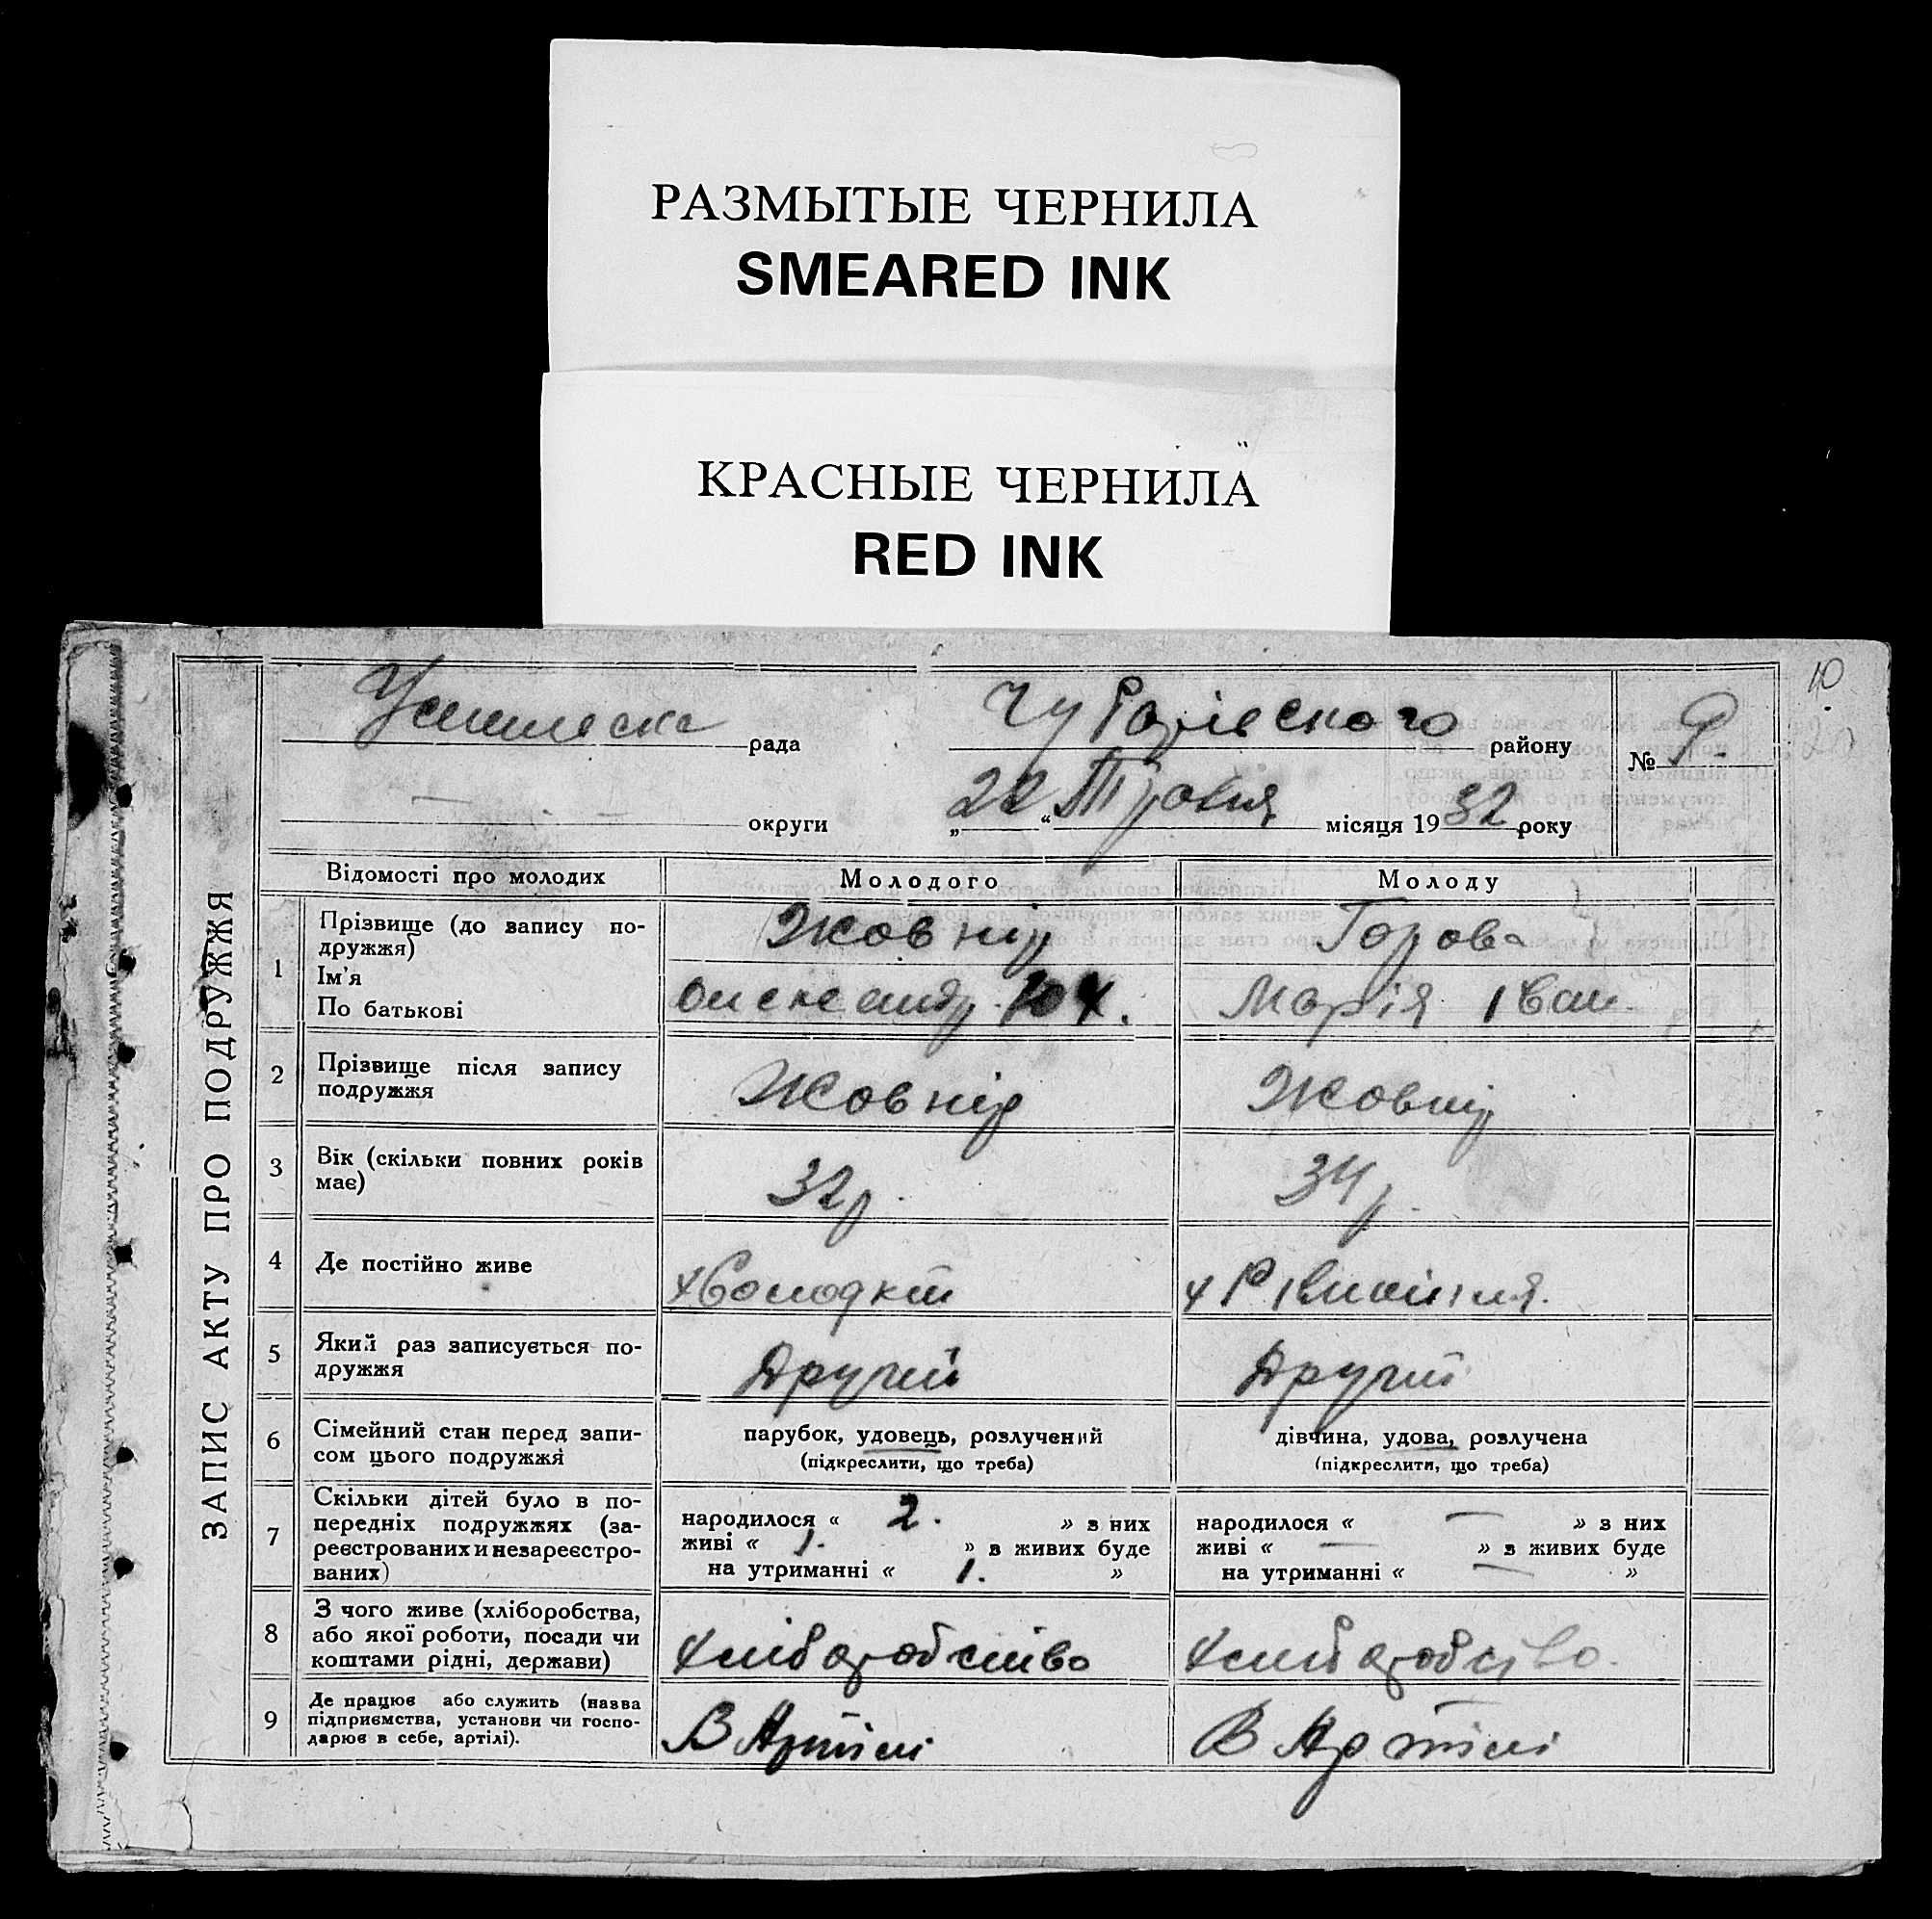 РАЗМЫТЫЕ ЧЕРНИЛА
SMEARED INK
КРАСНЫЕ ЧЕРНИЛА
RED INK
10
ЗАПИС АКТУ ПРО ПОДРУЖЖЯ
рада Чубарівского району № 9
округи „22“ Травня місяця 1932 року
Відомості про молодих Молодого Молоду
1 Прізвище (до запису по-
дружжя) Жовнір Горова
Ім'я
По батькові Олександр Марія Іван.
2 Прізвище після запису
подружжя Жовнір Жовнір
3 Вік (скільки повних років
має) 32 р. 34 р.
4 Де постійно живе х
5 Який раз записується по-
дружжя Другий Другий
6 Сімейний стан перед запи-
сом цього подружжя парубок, удовець, розлучений дівчина, удова, розлучена
(підкреслити, що треба) (підкреслити, що треба)
7 Скільки дітей було в по-
передніх подружжях (за-
реєстрованих и незареєстро-
ваних) народилося « 2. » з них народилося « — » з них
живі « 1. » в живих буде живі « — » в живих буде
на утриманні « 1. » на утриманні « — »
8 З чого живе (хліборобства,
або якої роботи, посади чи
коштами рідні, держави) хліборобство хліборобство.
9 Де працює або служить (назва
підприємства, установи чи госпо-
дарює в себе, артілі). В Артілі В Артілі